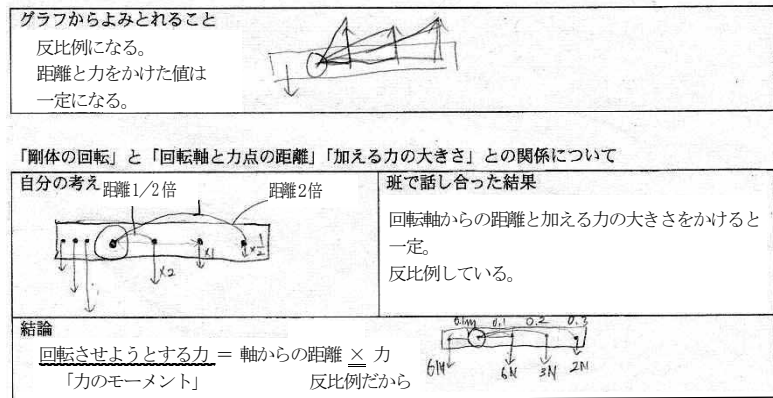 グラフからよみとれること
反比例になる。
距離と力をかけた値は
一定になる。
「剛体の回転」と「回転軸と力点の距離」「加える力の大きさ」との関係について
自分の考え
距離1/2倍
距離2倍
×2
×1
×1/2
班で話し合った結果
回転軸からの距離と加える力の大きさをかけると
一定。
反比例している。
結論
回転させようとする力 = 軸からの距離 × 力
「力のモーメント」
反比例だから
0.1m 0.1 0.2 0.3
6N 6N 3N 2N